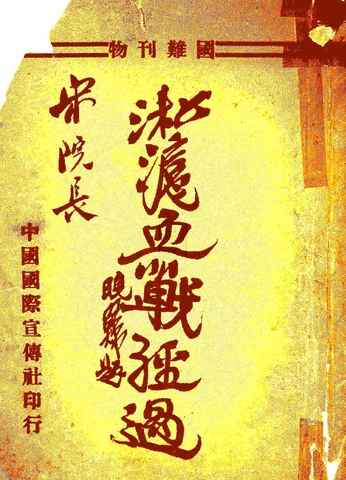 國難刊物
淞滬血戰經過
曉籟題
宋院長
中國國際宣傳社印行